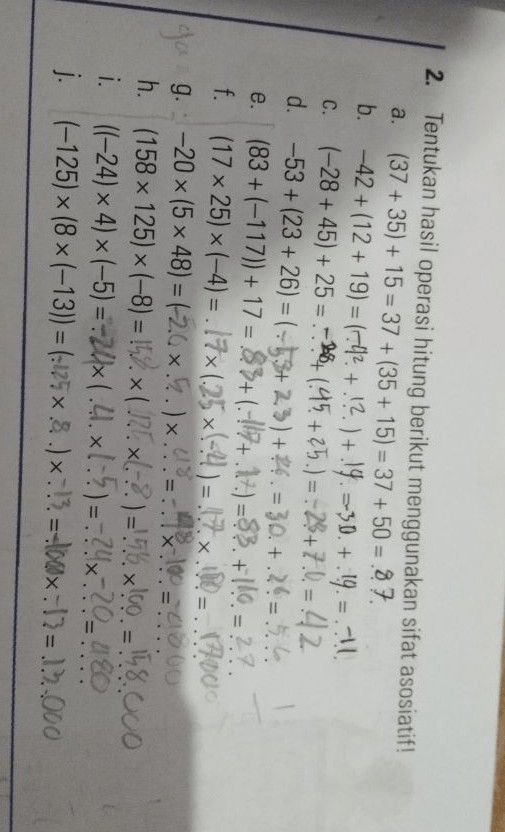 2. Tentukan hasil operasi hitung berikut menggunakan sifat asosiatif!
a. (37 + 35) + 15 = 37 + (35 + 15) = 37 + 50 = 87
b. −42 + (12 + 19) = (−42 + 12) + 19 = −30 + 19 = −11
c. (−28 + 45) + 25 = −28 + (45 + 25) = −28 + 70 = 42
d. −53 + (23 + 26) = (−53 + 23) + 26 = 30 + 26 = 56
e. (83 + (−117)) + 17 = 83 + (−117 + 17) = 83 + −110 = 27
f. (17 × 25) × (−4) = 17 × (25 × (−4)) = 17 × 100 =
g. −20 × (5 × 48) = (−20 × 5) × 48 = × −100 =
h. (158 × 125) × (−8) = 158 × (125 × (−8)) = 158 × 100 = 158000
i. ((−24) × 4) × (−5) = −24 × (4 × (−5)) = −24 × −20 = 480
j. (−125) × (8 × (−13)) = (−125 × 8) × −13 = × −13 = 13.000